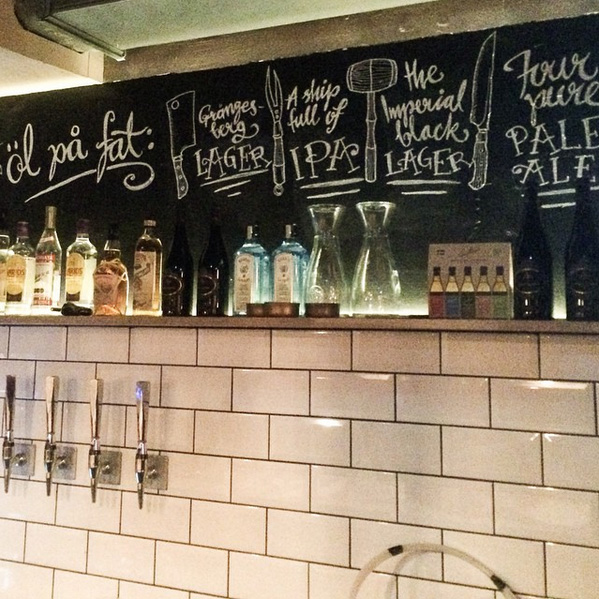 öl på fat:
Gränges-
berg
LAGER
A ship
full of
IPA
the
Imperial
black
LAGER
Four
pure
PALE
ALE